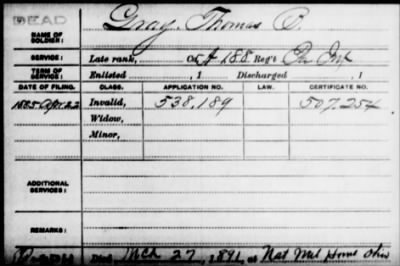 DEAD
Gray, Thomas
NAME OF SOLDIER:
SERVICE: Late rank, Co. A 188 Reg't Pa Inf
TERM OF SERVICE: Enlisted , 1 Discharged , 1
DATE OF FILING. CLASS. APPLICATION NO. LAW. CERTIFICATE NO.
1885 Apr. 22 Invalid, 538,189 507,254
Widow,
Minor,
ADDITIONAL SERVICES:
REMARKS:
Died Mch 27, 1891, at Nat Mil Home Ohio